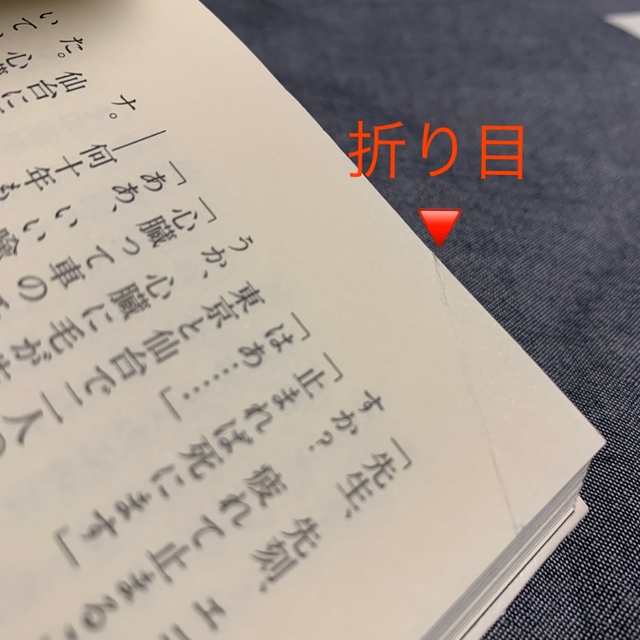 折り目
「先生、先刻、エ
すか？疲れて止まる
「止まれば死にます」
「はあ……」
うか、東京と仙台で二人の
「心臓って車の
心臓に毛が
「ああ、いい喩
ナ。――何十年も
いた。仙台に